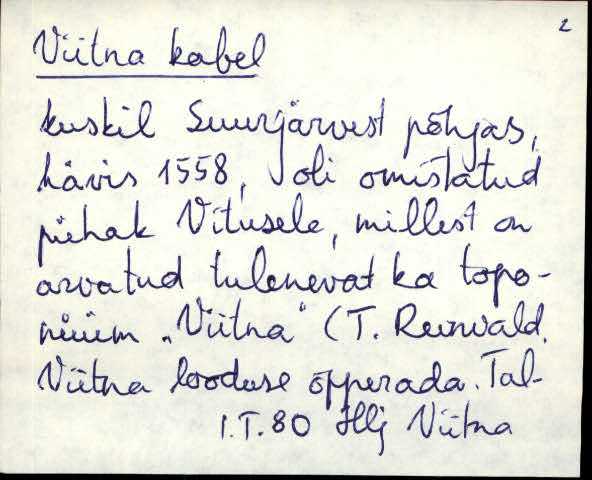 2
Viitna kabel
kuskil Suurjärvest põhjas,
hävis 1558, oli omistatud
pühak Vitusele, millest on
arvatud tulenevat ka topo-
nüüm „Viitna" (T. Reinvald.
Viitna looduse õpperada. Tal-
I.T.80 Hlj Viitna